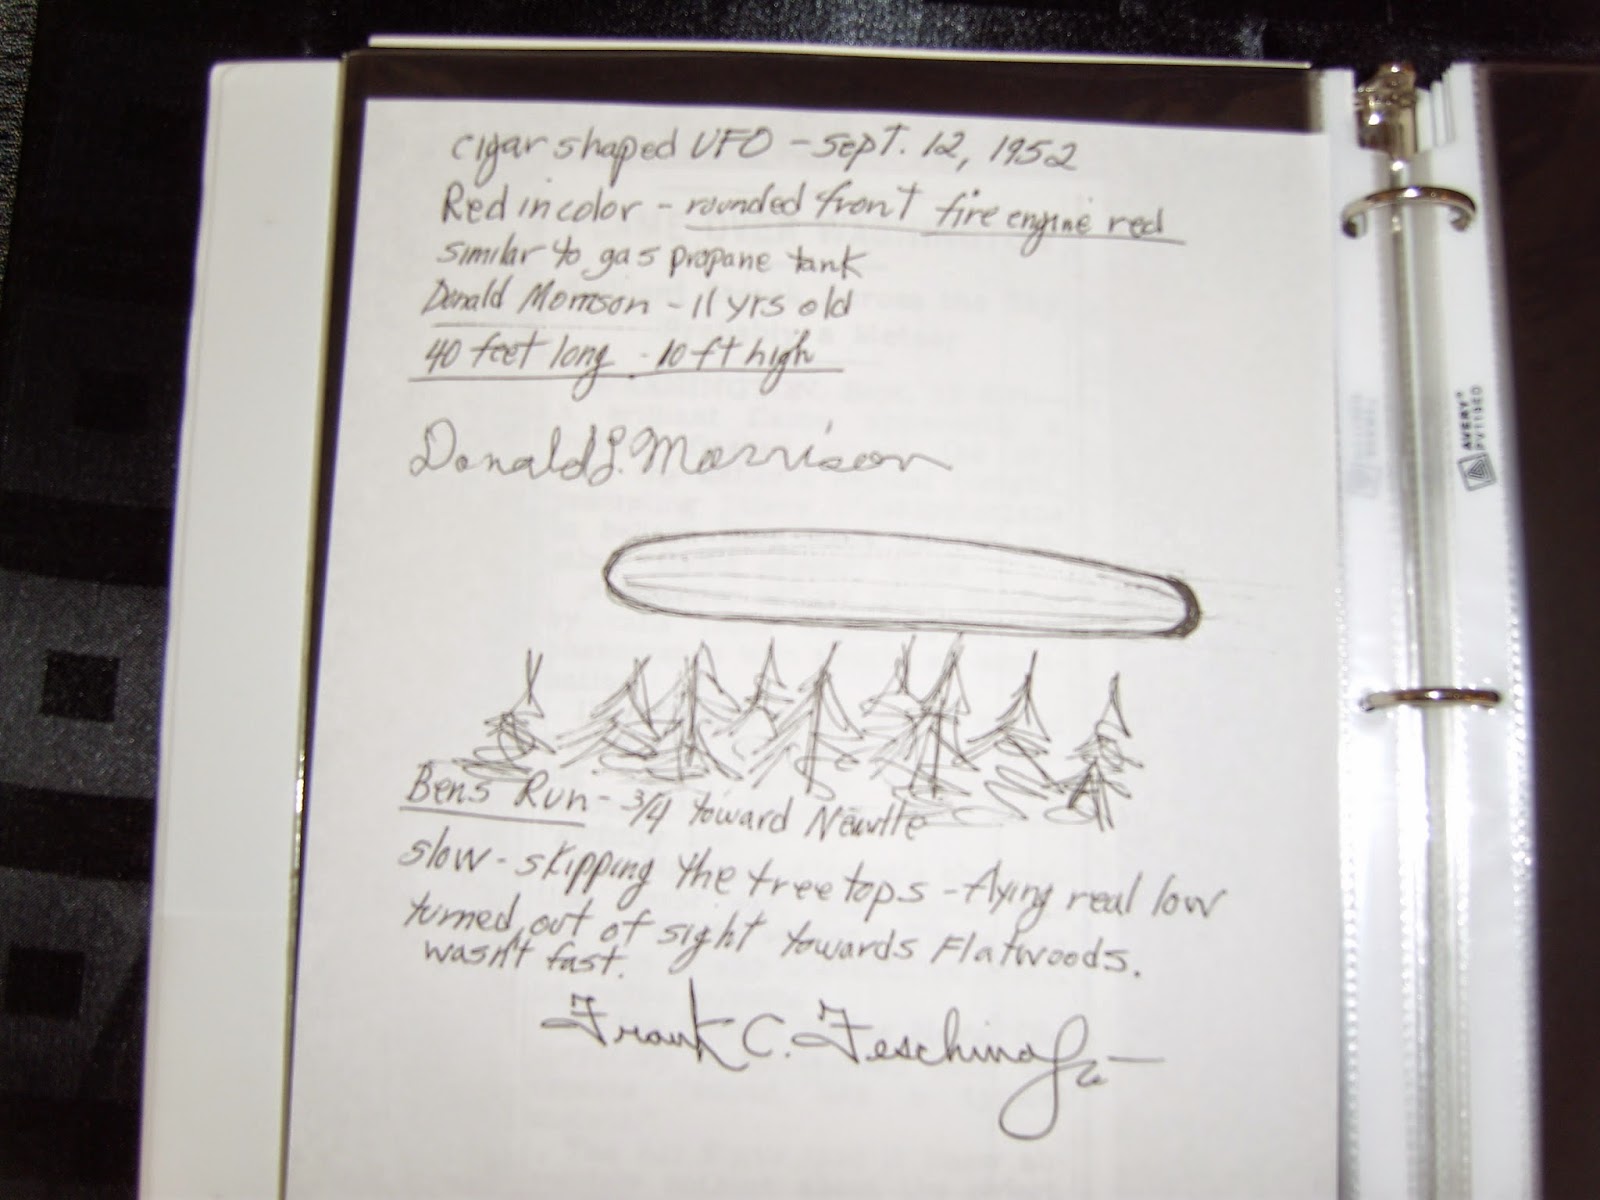 cigar shaped UFO - Sept. 12, 1952
Red in color - rounded front fire engine red
similar to gas propane tank
Donald Morrison - 11 yrs old
40 feet long - 10 ft high
Donald L. Morrison
Bens Run - 3/4 toward
slow - skipping the tree tops - flying real low
turned out of sight towards Flatwoods.
wasn't fast.
Frank C. Feschino Jr
AVERY